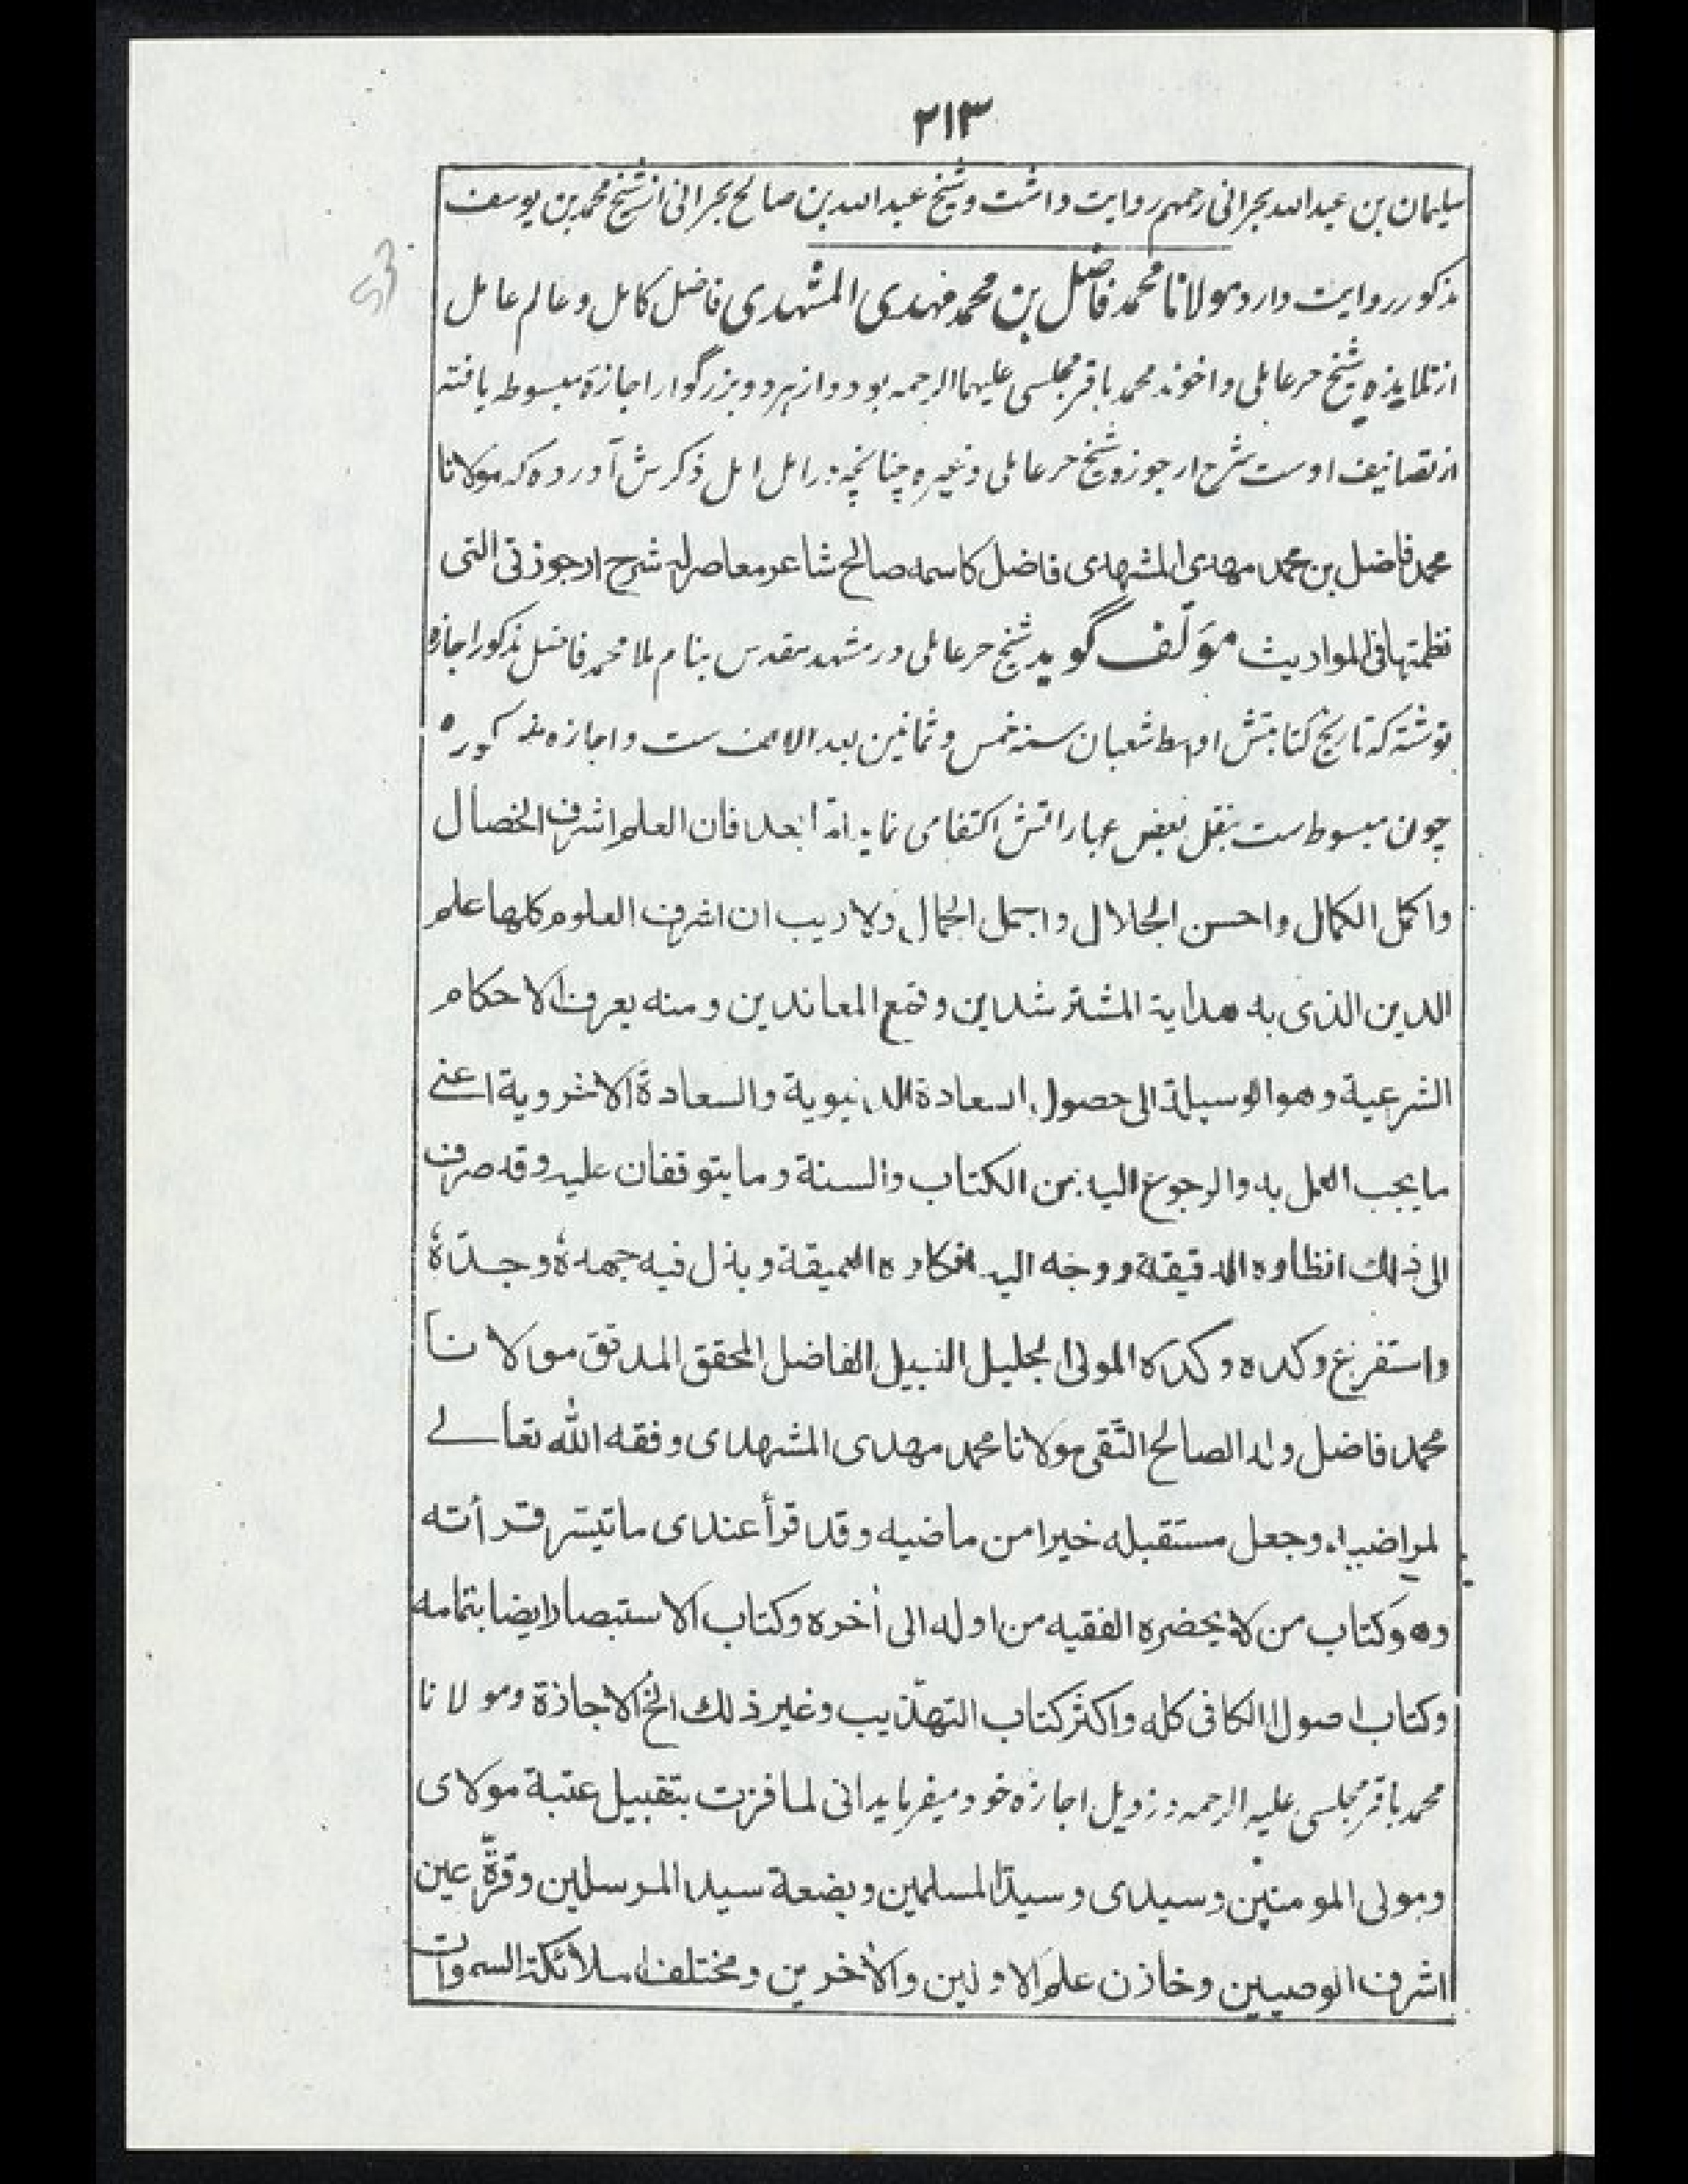 ٢١٣
سلیمان بن عبداللہ بحرانی رحمهم روایت داشت و شیخ عبداللہ بن صالح بحرانی از شیخ محمد بن یوسف
مذکور روایت دارد مولانا محمد فاضل بن محمد مهدی المشهدی فاضل کامل و عالم عامل
از تلامیذه شیخ حر عاملی و اخوند محمد باقر مجلسی علیهما الرحمه بود و از هر دو بزرگوار اجازهٔ مبسوطه یافته
از تصانیف اوست شرح ارجوزه شیخ حر عاملی و غیره چنانچه در امل امل ذکرش آورده که مولانا
محمد فاضل بن محمد مهدی المشهدی فاضل کاسمه صالح شاعر معاصر له شرح ارجوزتی التی
نظمتها فی المواریث مؤلّف گوید شیخ حر عاملی در مشهد مقدس بنام ملا محمد فاضل مذکور اجازه
نوشته که تاریخ کتابتش اواسط شعبان سنه خمس و ثمانین بعد الالف ست و اجازه مذکوره
چون مبسوط ست بنقل بعض عباراتش اکتفا می نماید امّا بعد فان العلم اشرف الخصال
واکمل الکمال واحسن الجلال واجمل الجمال ولاریب ان اشرف العلوم کلها علم
الدین الذی به هدایة المسترشدین وقمع المعاندین ومنه یعرف الاحکام
الشرعیة وهو الوسیلة الی حصول السعادة الدنیویة والسعادة الاخرویة اعنے
ما یجب العمل به والرجوع الیه من الکتاب والسنة وما یتوقفان علیه وقد صرف
الی ذلك انظاره الدقیقة ووجّه الیه افکاره العمیقة وبذل فیه جهدهٗ وجدّهٗ
واستفرغ وکده وکدّه المولی الجلیل النبیل الفاضل المحقق المدقق مولانا
محمد فاضل ولد الصالح التّقی مولانا محمد مهدی المشهدی وفقه اللّٰه تعالے
لمراضیه وجعل مستقبله خیرا من ماضیه وقد قرأ عندی ما تیسّر قرأته
وهو کتاب من لا یحضره الفقیه من اوله الی اٰخره وکتاب الاستبصار ایضا بتمامه
وکتاب اصول الکافی کله واکثر کتاب التهذیب وغیر ذلك الخ الاجازة ومولانا
محمد باقر مجلسی علیه الرحمه در ذیل اجازه خود میفرماید انی لما فزت بتقبیل عتبة مولای
ومولی المومنین وسیدی وسیّد المسلمین وبضعة سید المرسلین وقرّة عین
اشرف الوصیین وخازن علم الاولین والاٰخرین ومختلف ملائکة السموات
53